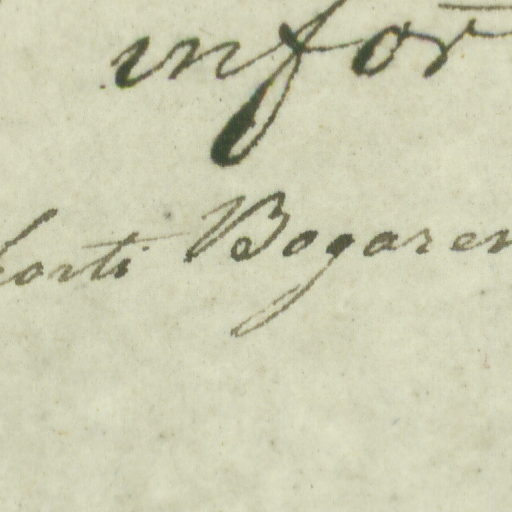 infor
korti Bogaren